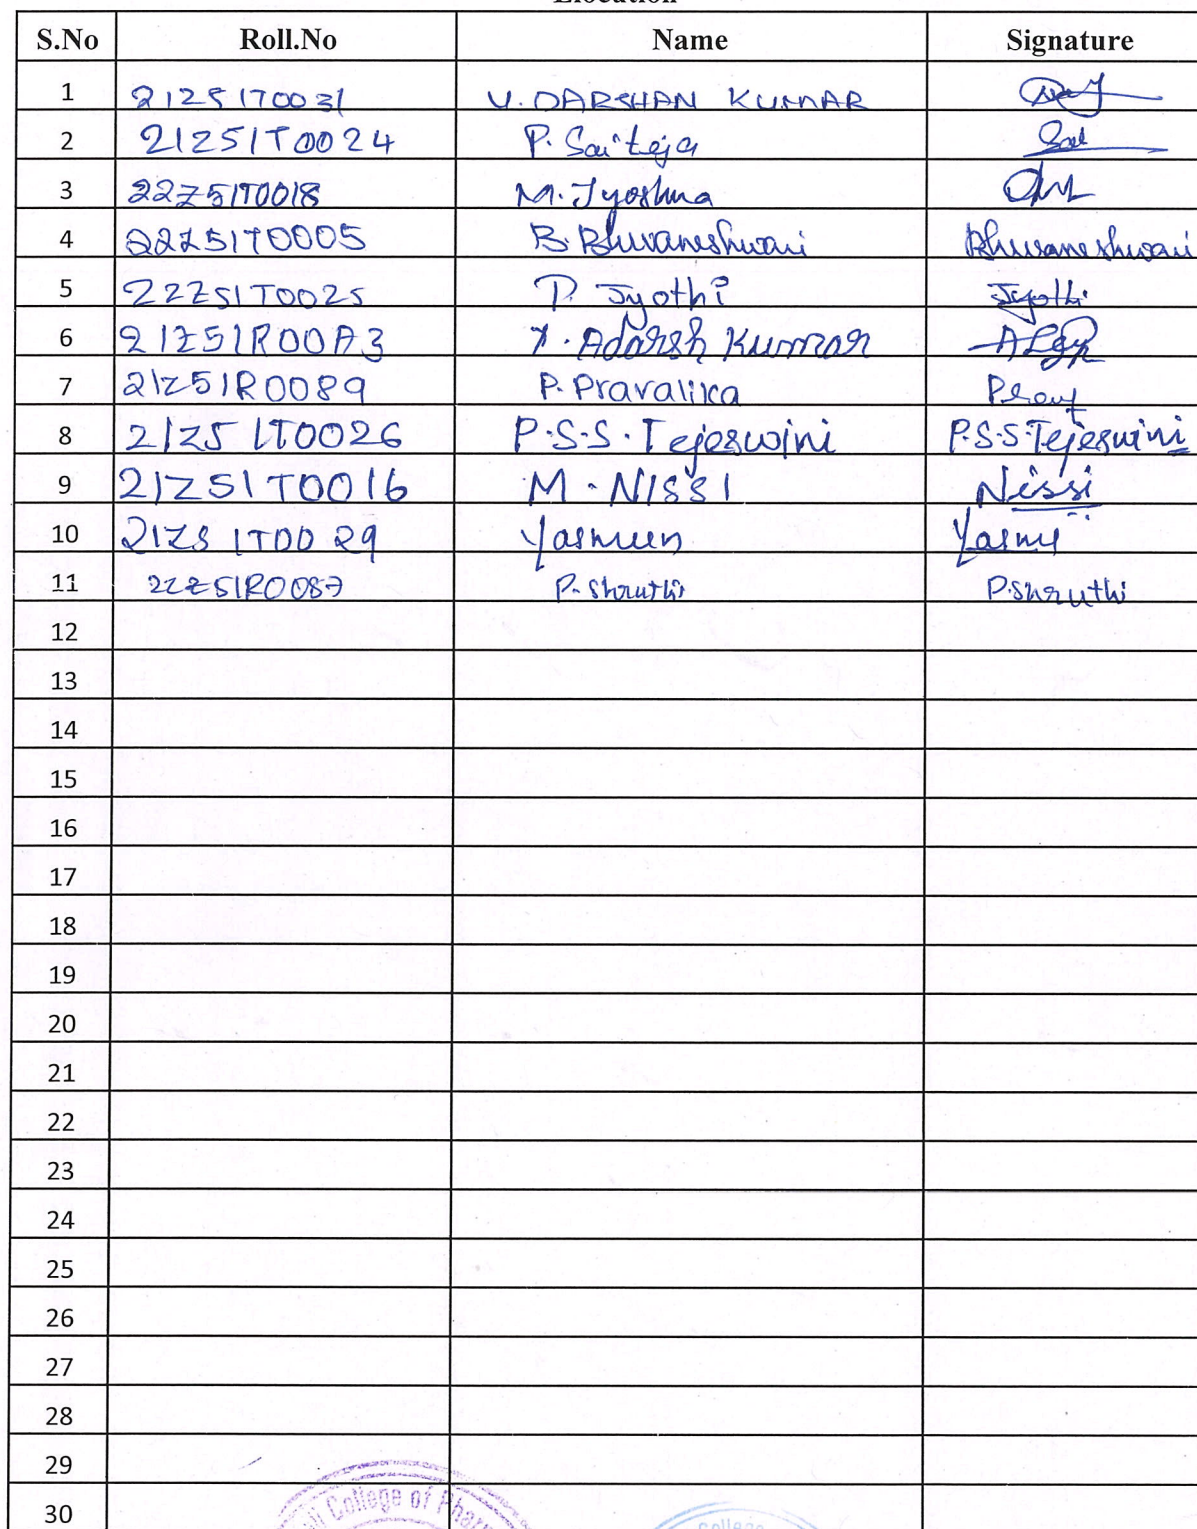 Elocution
S.No Roll.No Name Signature
1 21Z51T0031 V. DARSHAN KUMAR
2 21Z51T0024 P. Sai teja Sai
3 22Z51T0018 M. Jyoshna
4 22Z51T0005 B. Bhuvaneshwari Bhuvaneshwari
5 22Z51T0025 P. Jyothi Jyothi
6 21Z51R00A3 Y. Adarsh Kumar
7 21Z51R0089 P. Pravalika
8 21Z51T0026 P.S.S. Tejeswini P.S.S Tejeswini
9 21Z51T0016 M. NISSI Nissi
10 21Z51T0029 Yasmeen
11 22Z51R0087 P. Shruthi P.Shruthi
12
13
14
15
16
17
18
19
20
21
22
23
24
25
26
27
28
29
30
College of
College